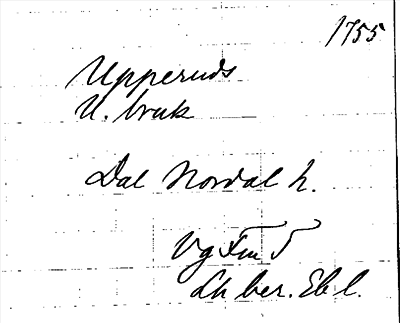 1755
Upperuds
U. bruk
Dal Nordal h.
Vg Fm 5
Lh ber. Ebl.